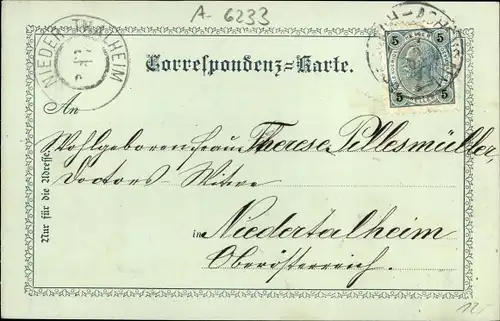 A-6233
NIEDER THALHEIM
5 5
5 5
Correspondenz-Karte.
An
Wohlgeboren Frau Therese Pellesmüller,
Doctors-Witwe
in Niedertalheim
Oberösterreich.
Nur für die Adresse.